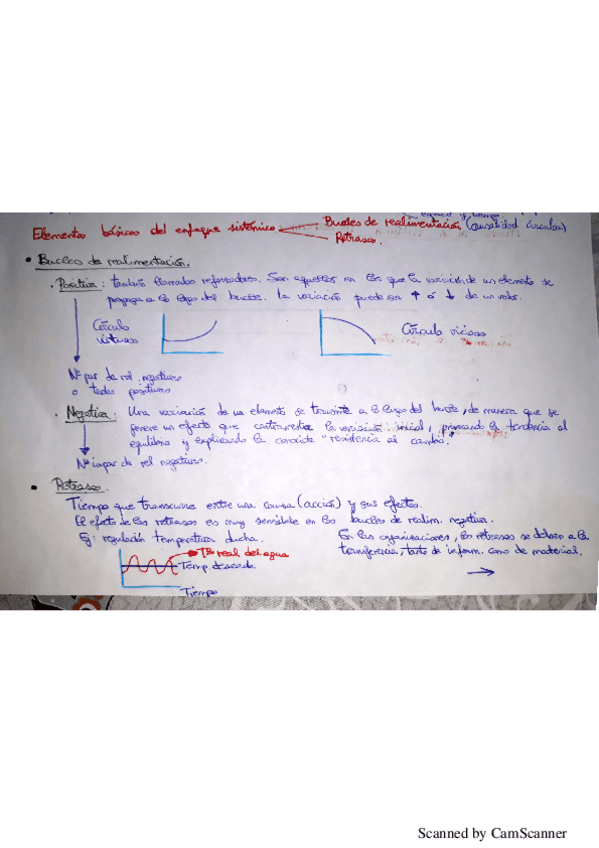 Elementos básicos del enfoque sistémico
Bucles de realimentación (causalidad circular)
Retrasos.
• Bucles de realimentación.
. Positiva: también llamados reforzadores. Son aquellos en los que la variación de un elemento se
propaga a lo largo del bucle. La variación puede ser ↑ ó ↓ de un valor.
Círculo
virtuoso
Círculo vicioso
Nº par de rel. negativas
o todas positivas
. Negativa: Una variación de un elemento se transmite a lo largo del bucle, de manera que se
genere un efecto que contrarresta la variación inicial, la tendencia al
equilibrio y explicando la conocida "resistencia al cambio".
Nº impar de rel negativas.
• Retrasos.
Tiempo que transcurre entre una causa (acción) y sus efectos.
El efecto de los retrasos es muy sensible en los bucles de realim. negativa.
Ej: regulación temperatura ducha.
En las organizaciones, los retrasos se deben a la
transferencia, tanto de inform. como de material.
Tª real del agua
Temp deseada
Tiempo
Scanned by CamScanner